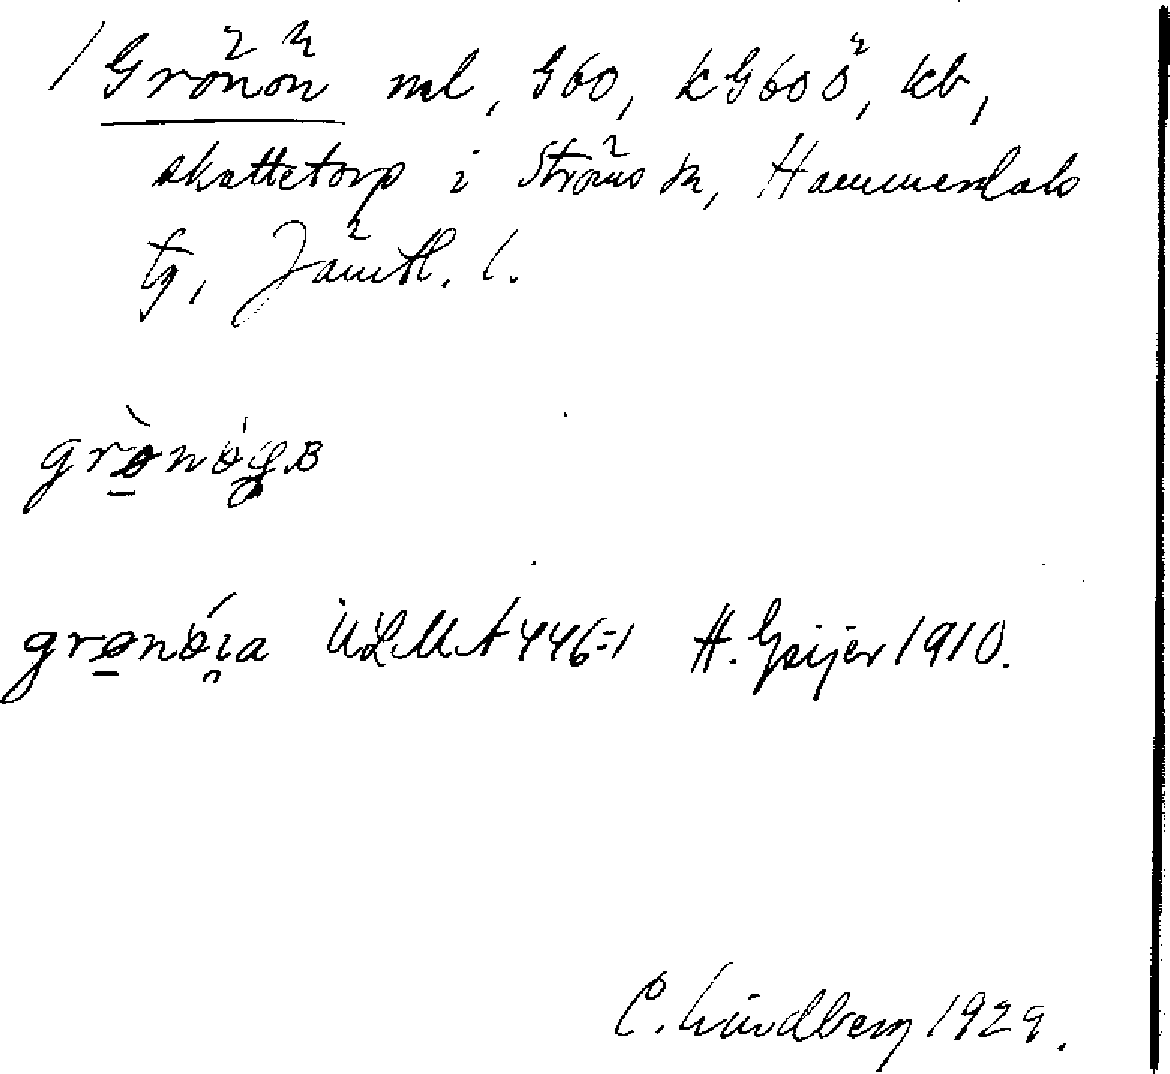 / Grönön ml, G60, kG60ö, kb,
skattetorp i Ströms sn, Hammerdals
tg, Jämtl. l.
grònö
grønöıa ULMA 446:1 H. Geijer 1910.
C. Lindberg 1929.